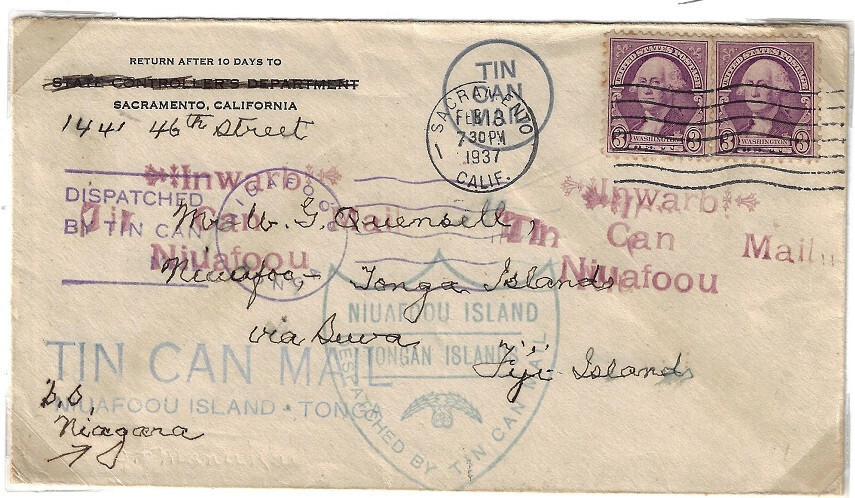 RETURN AFTER 10 DAYS TO
STATE CONTROLLER'S DEPARTMENT
SACRAMENTO, CALIFORNIA
1441 46th Street
TIN
CAN
MAIL
SACRAMENTO
FEB 13
7 30 PM
1937
CALIF.
UNITED STATES POSTAGE
3 WASHINGTON 3
UNITED STATES POSTAGE
3 WASHINGTON 3
DISPATCHED
BY TIN CAN
Inward
Tin Can Mail
Niuafoou
Inward
Tin Can Mail
Niuafoou
Mr. W. G. Quensell,
Niuafoo,- Tonga Islands
via Suva
Fiji Islands
NIUAFOOU ISLAND
TONGAN ISLANDS
DESPATCHED BY TIN CAN MAIL
TIN CAN MAIL
NIUAFOOU ISLAND · TONGA
S.S.
Niagara